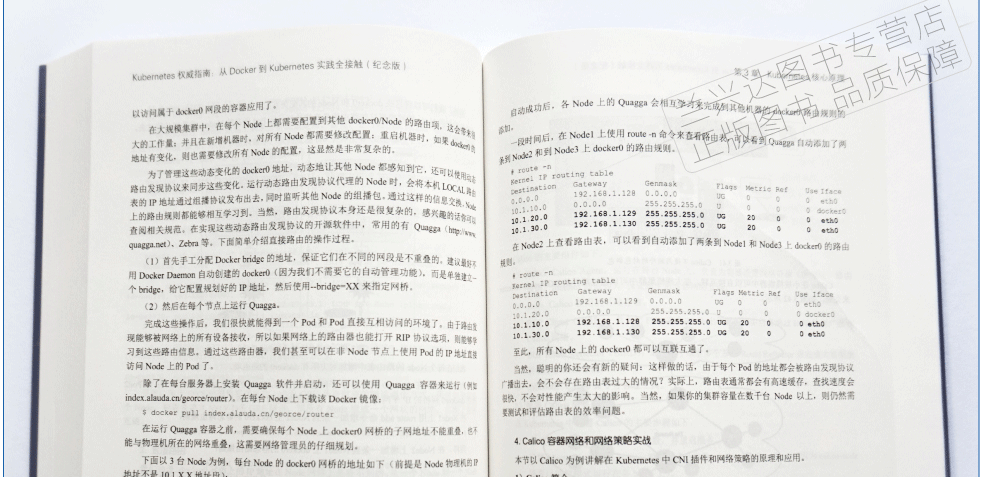 Kubernetes 权威指南：从 Docker 到 Kubernetes 实践全接触（纪念版）
以访问属于 docker0 网段的容器应用了。
在大规模集群中，在每个 Node 上都需要配置到其他 docker0/Node 的路由项，这会带来很
大的工作量；并且在新增机器时，对所有 Node 都需要修改配置；重启机器时，如果 docker0 的
地址有变化，则也需要修改所有 Node 的配置，这显然是非常复杂的。
为了管理这些动态变化的 docker0 地址，动态地让其他 Node 都感知到它，还可以使用动态
路由发现协议来同步这些变化。运行动态路由发现协议代理的 Node 时，会将本机 LOCAL 路由
表的 IP 地址通过组播协议发布出去，同时监听其他 Node 的组播包。通过这样的信息交换，Node
上的路由规则都能够相互学习到。当然，路由发现协议本身还是很复杂的，感兴趣的话你可以
查阅相关规范。在实现这些动态路由发现协议的开源软件中，常用的有 Quagga（http://www.
quagga.net）、Zebra 等。下面简单介绍直接路由的操作过程。
（1）首先手工分配 Docker bridge 的地址，保证它们在不同的网段是不重叠的。建议最好不
用 Docker Daemon 自动创建的 docker0（因为我们不需要它的自动管理功能），而是单独建立一
个 bridge，给它配置规划好的 IP 地址，然后使用--bridge=XX 来指定网桥。
（2）然后在每个节点上运行 Quagga。
完成这些操作后，我们很快就能得到一个 Pod 和 Pod 直接互相访问的环境了。由于路由发
现能够被网络上的所有设备接收，所以如果网络上的路由器也能打开 RIP 协议选项，则能够学
习到这些路由信息。通过这些路由器，我们甚至可以在非 Node 节点上使用 Pod 的 IP 地址直接
访问 Node 上的 Pod 了。
除了在每台服务器上安装 Quagga 软件并启动，还可以使用 Quagga 容器来运行（例如
index.alauda.cn/georce/router）。在每台 Node 上下载该 Docker 镜像：
$ docker pull index.alauda.cn/georce/router
在运行 Quagga 容器之前，需要确保每个 Node 上 docker0 网桥的子网地址不能重叠，也不
能与物理机所在的网络重叠，这需要网络管理员的仔细规划。
下面以 3 台 Node 为例，每台 Node 的 docker0 网桥的地址如下（前提是 Node 物理机的 IP
地址不是 10.1.X.X 地址段）：
第 3 章 Kubernetes 核心原理
启动成功后，各 Node 上的 Quagga 会相互学习来完成到其他机器的 docker0 路由规则的
添加。
一段时间后，在 Node1 上使用 route -n 命令来查看路由表，可以看到 Quagga 自动添加了两
条到 Node2 和到 Node3 上 docker0 的路由规则。
# route -n
Kernel IP routing table
Destination Gateway Genmask Flags Metric Ref Use Iface
0.0.0.0 192.168.1.128 0.0.0.0 UG 0 0 0 eth0
10.1.10.0 0.0.0.0 255.255.255.0 U 0 0 0 docker0
10.1.20.0 192.168.1.129 255.255.255.0 UG 20 0 0 eth0
10.1.30.0 192.168.1.130 255.255.255.0 UG 20 0 0 eth0
在 Node2 上查看路由表，可以看到自动添加了两条到 Node1 和 Node3 上 docker0 的路由
规则。
# route -n
Kernel IP routing table
Destination Gateway Genmask Flags Metric Ref Use Iface
0.0.0.0 192.168.1.129 0.0.0.0 UG 0 0 0 eth0
10.1.20.0 0.0.0.0 255.255.255.0 U 0 0 0 docker0
10.1.10.0 192.168.1.128 255.255.255.0 UG 20 0 0 eth0
10.1.30.0 192.168.1.130 255.255.255.0 UG 20 0 0 eth0
至此，所有 Node 上的 docker0 都可以互联互通了。
当然，聪明的你还会有新的疑问：这样做的话，由于每个 Pod 的地址都会被路由发现协议
广播出去，会不会存在路由表过大的情况？实际上，路由表通常都会有高速缓存，查找速度会
很快，不会对性能产生太大的影响。当然，如果你的集群容量在数千台 Node 以上，则仍然需
要测试和评估路由表的效率问题。
4. Calico 容器网络和网络策略实战
本节以 Calico 为例讲解在 Kubernetes 中 CNI 插件和网络策略的原理和应用。
兰兴达图书专营店
正版图书 品质保障